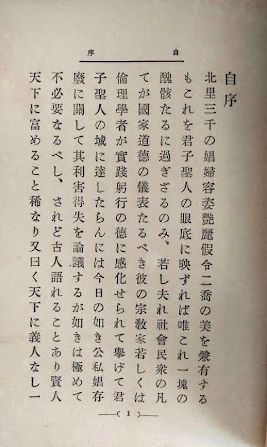 自序
自序
北里三千の娼婦容姿艶麗假令二喬の美を兼有する
もこれを君子聖人の眼底に映ずれば唯これ一塊の
醜骸たるに過ぎざるのみ、若し夫れ社會民衆の凡
てが國家道德の儀表たるべき彼の宗敎家若しくは
倫理學者が實踐躬行の德に感化せられて擧げて君
子聖人の域に達したらんには今日の如き公私娼存
廢に關して其利害得失を論議するが如きは極めて
不必要なるべし、されど古人語れることあり賢人
天下に富めること稀なり又曰く天下に義人なし一
( 1 )